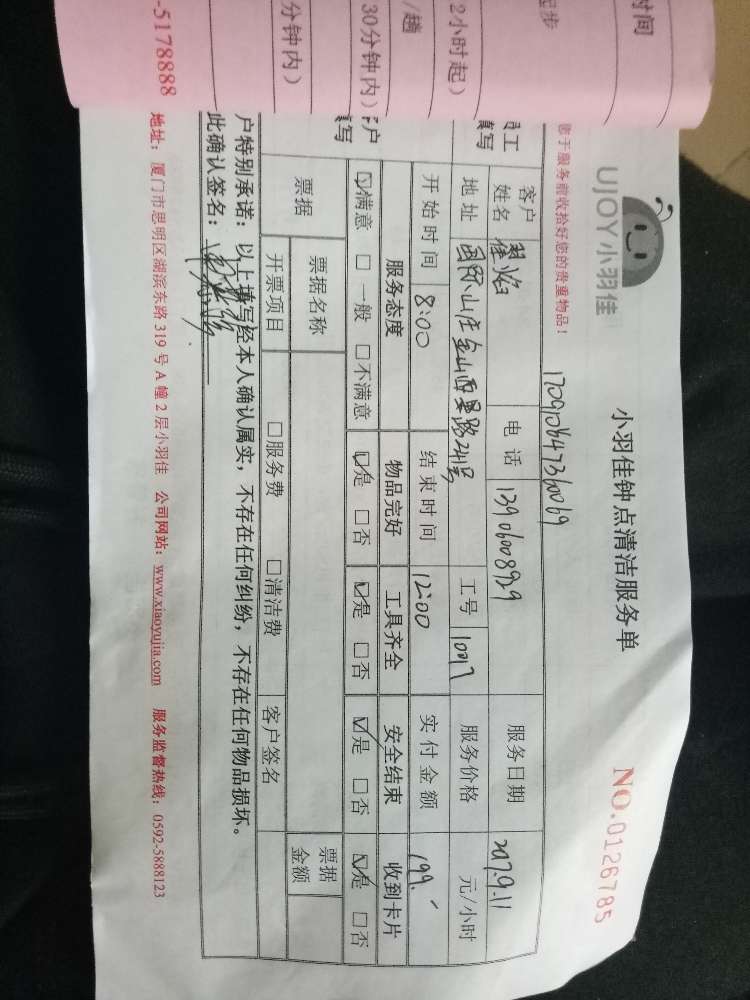 时间
起步
2小时起）
/趟
30分钟内）
分钟内）
-5178888
UJOY小羽佳
小羽佳钟点清洁服务单
NO.0126785
您于服务前收拾好您的贵重物品！
17091084736069
员工
填写
客户
姓名
电话 13906008929
服务日期 2017.9.11
地址 国际山庄金山西里路241号
工号
服务价格 元/小时
开始时间 8:00 结束时间 12:00 实付金额 199.
客户
填写
服务态度 物品完好 工具齐全 安全结束 收到卡片
☑满意 □一般 □不满意 ☑是 □否 ☑是 □否 ☑是 □否 ☑是 □否
票据 票据名称 票据金额
开票项目 □服务费 □清洁费 客户签名
户特别承诺：以上填写经本人确认属实，不存在任何纠纷，不存在任何物品损坏。
此确认签名：
地址：厦门市思明区湖滨东路 319 号 A 幢 2 层小羽佳 公司网站：www.xiaoyujia.com 服务监督热线：0592-5888123